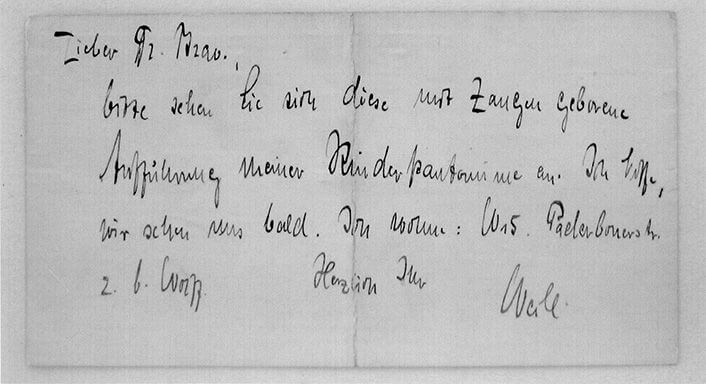 Lieber Dr. Strav.,
bitte sehen Sie sich diese mit Zangen geborene
Aufführung meiner Kinderpantomime an. Ich hoffe,
wir sehen uns bald. Ich wohne: W15. Paderbonerstr.
2. b.
Herzlich Ihr
Weill.